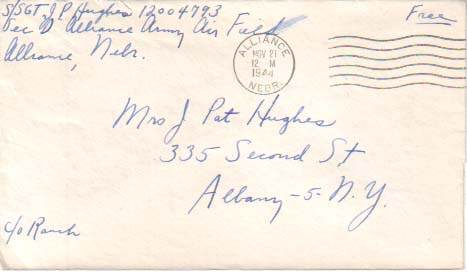 S/SGT. J P Hughes 12004793
Free
Sec D Alliance Army Air Field
Alliance, Nebr.
ALLIANCE
NOV 21
12 M
1944
NEBR.
Mrs J Pat Hughes
335 Second St
Albany-5-N.Y.
c/o Ranch